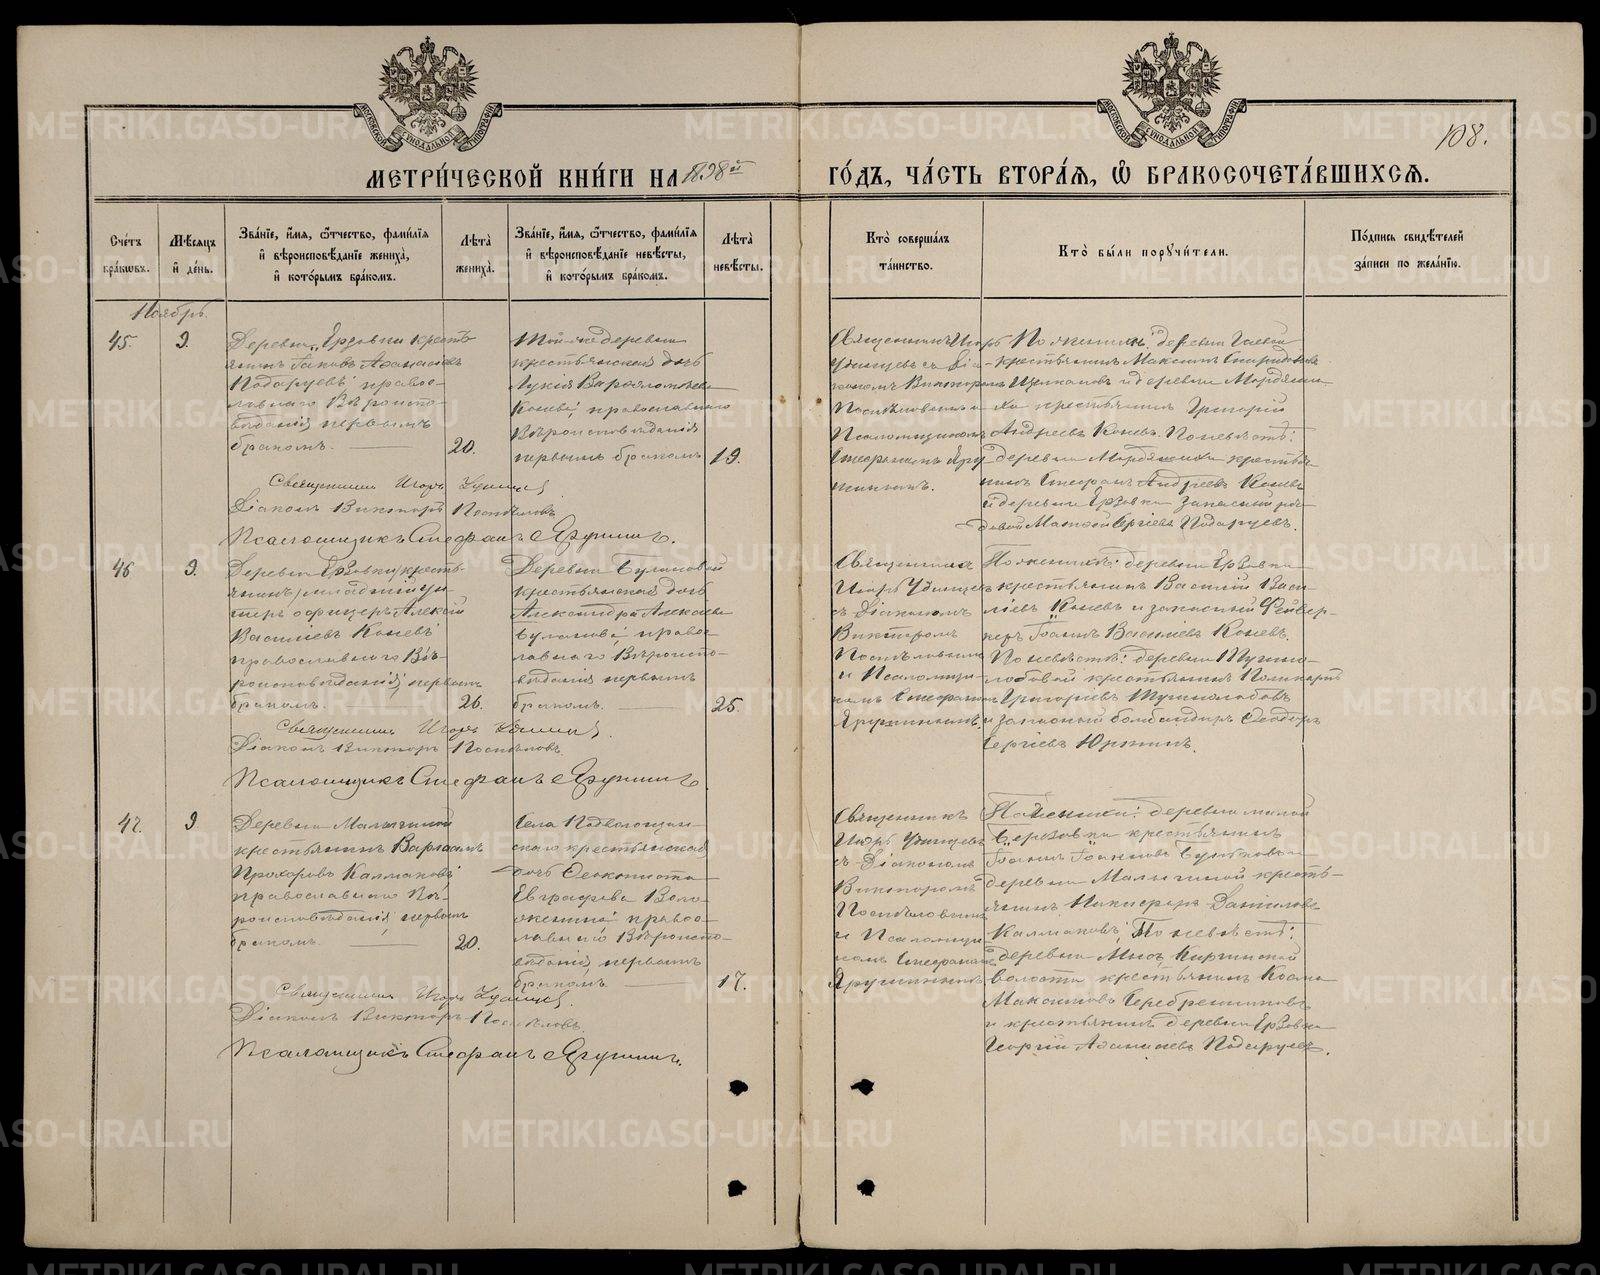 МОСКОВСКОЙ СѴНОДАЛЬНОЙ ТИПОГРАФІИ
МОСКОВСКОЙ СѴНОДАЛЬНОЙ ТИПОГРАФІИ
108.
МЕТРИ́ЧЕСКОЙ КНИ́ГИ НА 1898й
ГО́ДЪ, ЧА́СТЬ ВТОРА́Я, Ѽ БРАКОСОЧЕТА́ВШИХСЯ.
Сче́тъ бра́кѡвъ.
Мѣ́сяцъ и҆ де́нь.
Зва́нїе, и҆́мя, ѻ҆́тчество, фами́лїя
и҆ вѣроисповѣ́данїе жениха̀,
и҆ кото́рымъ бра́комъ.
Лѣта̀ жениха̀.
Зва́нїе, и҆́мя, ѻ҆́тчество, фами́лїя
и҆ вѣроисповѣ́данїе невѣ́сты,
и҆ кото́рымъ бра́комъ.
Лѣта̀ невѣ́сты.
Кто̀ соверша́лъ
та́инство.
Кто̀ бы́ли порꙋчи́тели.
По́дпись свидѣ́телей
за́писи по жела́нїю.
Ноябрь.
45.
9.
Деревни Ерзовки кресть-
янинъ Іаковъ Аѳанасіевъ
Подаруевъ, правос-
лавнаго Вѣроиспо-
вѣданія первымъ
бракомъ.
20.
Той-же деревни
крестьянская дочь
Лукія Варѳоломѣева
Конева, православнаго
Вѣроисповѣданія
первымъ бракомъ
19.
Священникъ Игорь
Удинцевъ съ Діа-
кономъ Викторомъ
Поспѣловымъ и
Псаломщикомъ
Стефаномъ Яру-
шинымъ.
По женихѣ: деревни
крестьянинъ Максимъ Спиридоновъ
и деревни
крестьянинъ Григорій
Андреевъ Коневъ. По невѣстѣ:
деревни крестья-
нинъ Стефанъ Андреевъ Коневъ
и деревни Ерзовки запасный ря-
довой Матѳей Сергіевъ Подаруевъ.
Священникъ Игорь Удинцевъ
Діаконъ Викторъ Поспѣловъ
Псаломщикъ Стефанъ Ярушинъ.
46
9.
Деревни Ерзовки, кресть-
янинъ, младшій ун-
теръ офицеръ Алексій
Василіевъ Коневъ
православнаго Вѣ-
роисповѣданія, первымъ
бракомъ.
26.
Деревни Булановой
крестьянская дочь
Александра Алексѣева
Буланова, правос-
лавнаго Вѣроиспо-
вѣданія первымъ
бракомъ.
25.
Священникъ
Игорь Удинцевъ
съ Діакономъ
Викторомъ
Поспѣловымъ
и Псаломщи-
комъ Стефаномъ
Ярушинымъ.
По женихѣ: деревни Ерзовки
крестьянинъ Василій Васи-
ліевъ Коневъ и запасный Фейвер-
керъ Іоаннъ Василіевъ Коневъ.
По невѣстѣ: деревни Тушно-
лобовой крестьянинъ Поликарпъ
Григоріевъ Тушнолобовъ
и запасный бомбандиръ Ѳеодоръ
Сергіевъ Юрьинъ.
Священникъ Игорь Удинцевъ.
Діаконъ Викторъ Поспѣловъ.
Псаломщикъ Стефанъ Ярушинъ.
47.
9
Деревни Малыгиной
крестьянинъ Варлаамъ
Прохоровъ Калмаковъ
православнаго Вѣ-
роисповѣданія, первымъ
бракомъ.
20.
Села Подволошин-
скаго крестьянская
дочь Ѳеоктиста
Евграфова Воло-
жанина правос-
лавнаго Вѣроиспо-
вѣданія, первымъ
бракомъ
17.
Священникъ
Игорь Удинцевъ
съ Діакономъ
Викторомъ
Поспѣловымъ
и Псаломщи-
комъ Стефаномъ
Ярушинымъ
По женихѣ: деревни малой
Ерзовки крестьянинъ
Іоаннъ Іоанновъ
деревни Малыгиной кресть-
янинъ Никифоръ Даниловъ
Калмаковъ; По невѣстѣ:
деревни Мысъ Киргинской
волости крестьянинъ Косма
Максимовъ Серебренниковъ
и крестьянинъ деревни Ерзовки
Георгій Аѳанасіевъ Подаруевъ.
Священникъ Игорь Удинцевъ.
Діаконъ Викторъ Поспѣловъ.
Псаломщикъ Стефанъ Ярушинъ.
METRIKI.GASO-URAL.RU